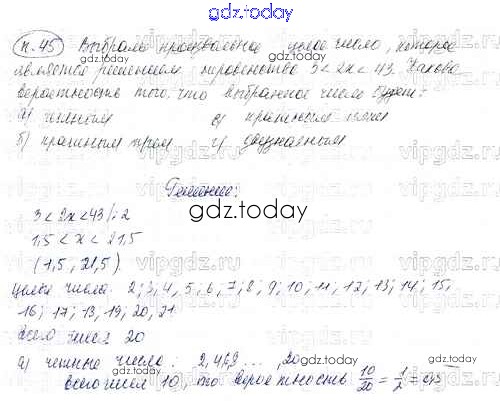 gdz.today
п.45 Выбрали произвольное целое число, которое
является решением неравенства 3 < 2x < 43. Какова
вероятность того, что выбранное число будет:
а) чётным
б) кратным трем г) двузначным
gdz.today
Решение:
gdz.today
3 < 2x < 43 /: 2
1,5 < x < 21,5
(1,5; 21,5)
целые числа: 2; 3, 4, 5, 6; 7; 8, 9; 10; 11, 12; 13; 14; 15,
16; 17; 18, 19, 20, 21
всего чисел 20
а) четные число: 2, 4, ..., 20
всего чисел 10, то вероятность 10/20 = 1/2 = 0,5
gdz.today